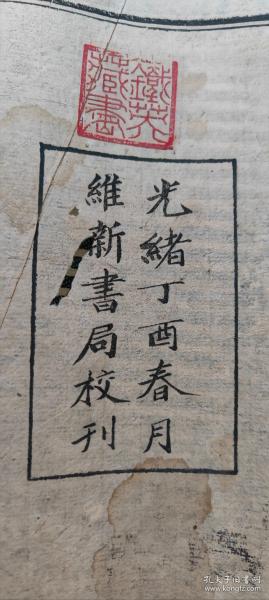 鐵英
藏書
光緒丁酉春月
維新書局校刊
孔夫子旧书网